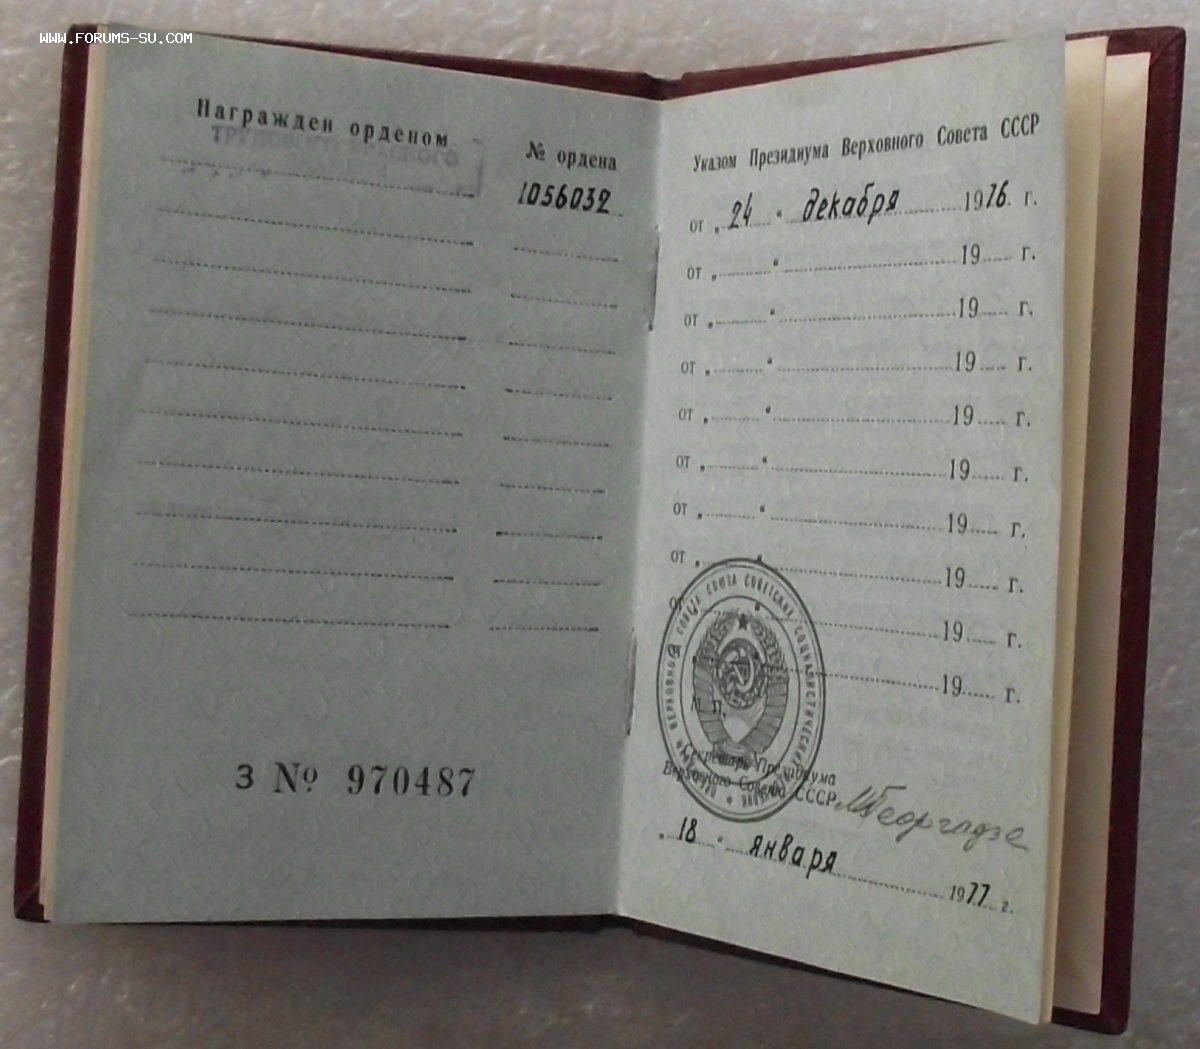 www.forums-su.com
Награжден орденом
ТРУДОВОГО КРАСНОГО
№ ордена
1056032
З № 970487
Указом Президиума Верховного Совета СССР
от „ 24 “ декабря 1976 г.
от „ “ 19 г.
от „ “ 19 г.
от „ “ 19 г.
от „ “ 19 г.
от „ “ 19 г.
от „ “ 19 г.
от „ “ 19 г.
от „ “ 19 г.
“ 19 г.
М. П.
Секретарь Президиума
Верховного Совета СССР МГеоргадзе
„ 18 “ января 1977 г.
ПРЕЗИДИУМ ВЕРХОВНОГО СОВЕТА СОЮЗА СОВЕТСКИХ СОЦИАЛИСТИЧЕСКИХ РЕСПУБЛИК